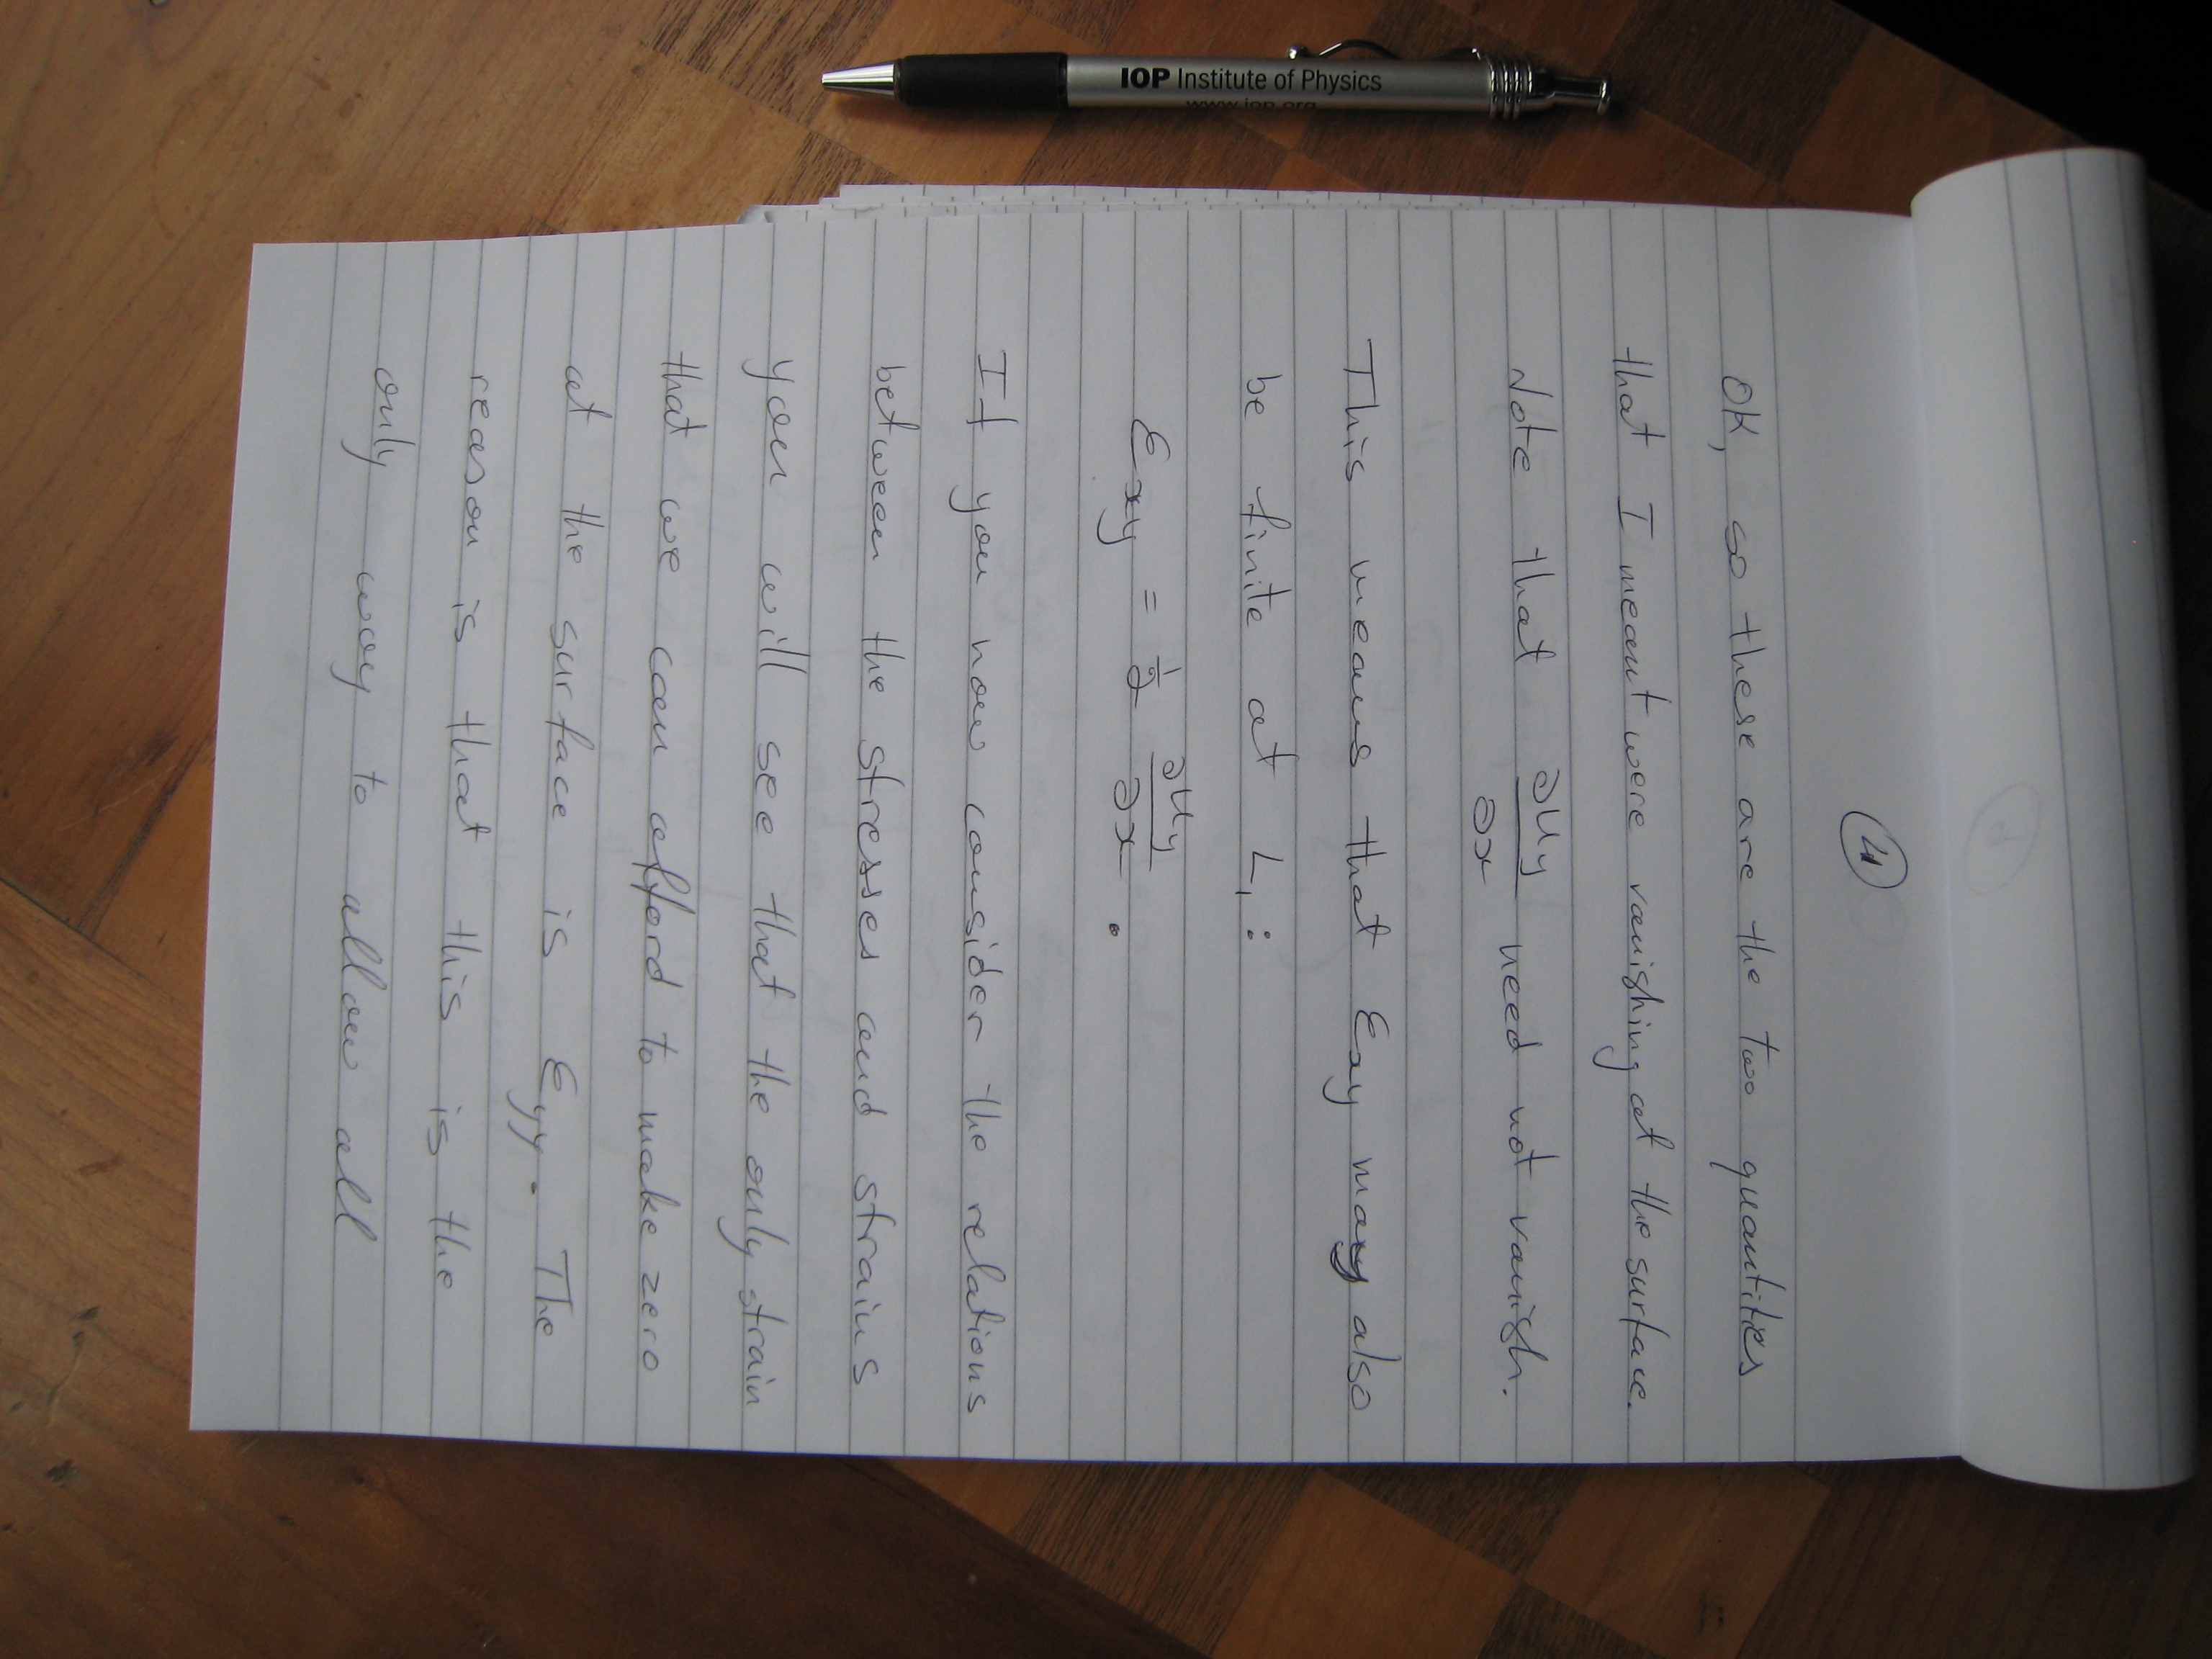 IOP Institute of Physics
www.iop.org
4
OK, so these are the two quantities
that I meant were vanishing at the surface.
Note that ∂uy/∂x need not vanish.
This means that Exy may also
be finite at L1:
Exy = 1/2 ∂uy/∂x .
If you now consider the relations
between the stresses and strains
you will see that the only strain
that we can afford to make zero
at the surface is Eyy. The
reason is that this is the
only way to allow all